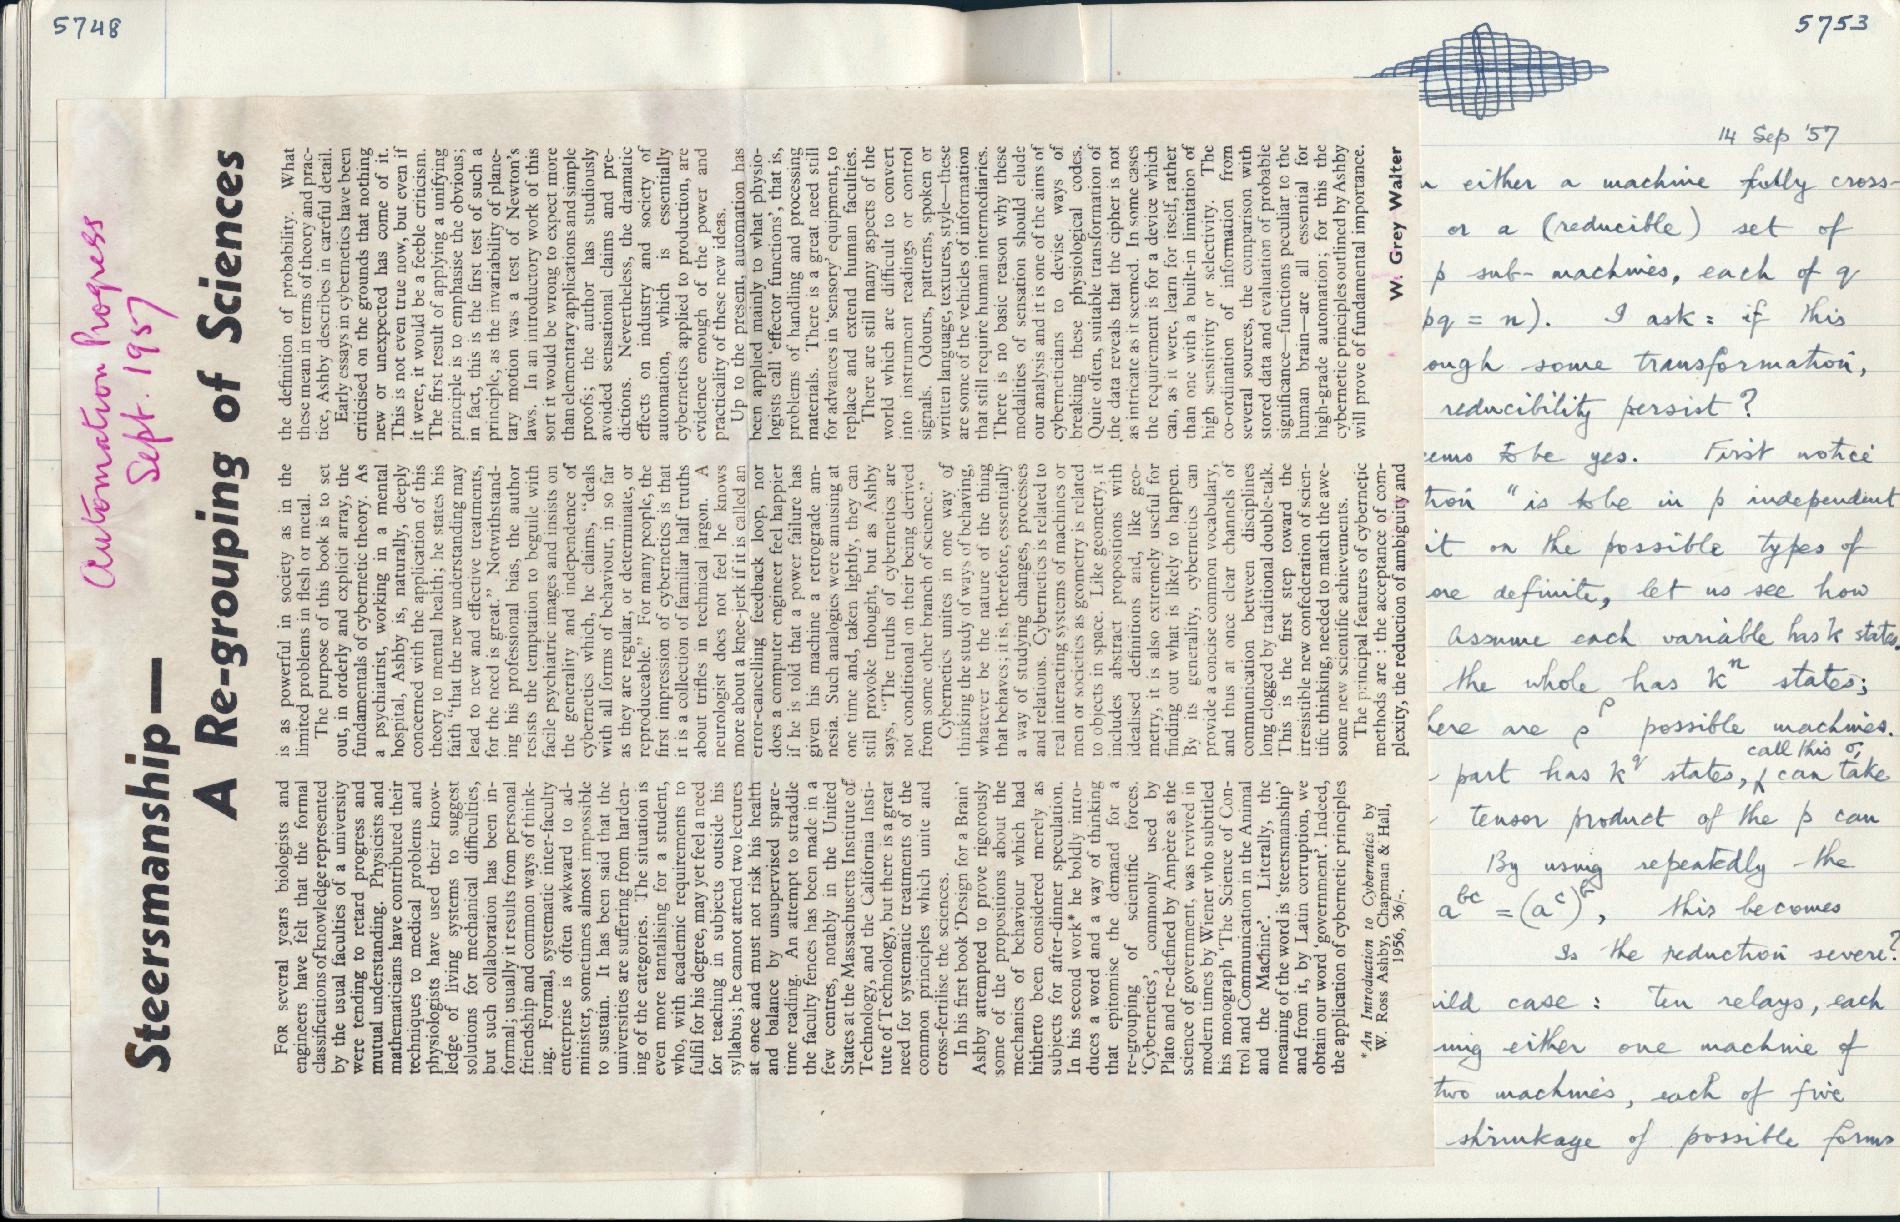 5748
Automation Progress
Sept. 1957
Steersmanship—
A Re-grouping of Sciences
FOR several years biologists and
engineers have felt that the formal
classifications of knowledge represented
by the usual faculties of a university
were tending to retard progress and
mutual understanding. Physicists and
mathematicians have contributed their
techniques to medical problems and
physiologists have used their know-
ledge of living systems to suggest
solutions for mechanical difficulties,
but such collaboration has been in-
formal; usually it results from personal
friendship and common ways of think-
ing. Formal, systematic inter-faculty
enterprise is often awkward to ad-
minister, sometimes almost impossible
to sustain. It has been said that the
universities are suffering from harden-
ing of the categories. The situation is
even more tantalising for a student,
who, with academic requirements to
fulfil for his degree, may yet feel a need
for teaching in subjects outside his
syllabus; he cannot attend two lectures
at once and must not risk his health
and balance by unsupervised spare-
time reading. An attempt to straddle
the faculty fences has been made in a
few centres, notably in the United
States at the Massachusetts Institute of
Technology, and the California Insti-
tute of Technology, but there is a great
need for systematic treatments of the
common principles which unite and
cross-fertilise the sciences.
In his first book 'Design for a Brain'
Ashby attempted to prove rigorously
some of the propositions about the
mechanics of behaviour which had
hitherto been considered merely as
subjects for after-dinner speculation.
In his second work* he boldly intro-
duces a word and a way of thinking
that epitomise the demand for a
re-grouping of scientific forces.
'Cybernetics', commonly used by
Plato and re-defined by Ampère as the
science of government, was revived in
modern times by Wiener who subtitled
his monograph 'The Science of Con-
trol and Communication in the Animal
and the Machine'. Literally, the
meaning of the word is 'steersmanship'
and from it, by Latin corruption, we
obtain our word 'government'. Indeed,
the application of cybernetic principles
*An Introduction to Cybernetics by
W. Ross Ashby, Chapman & Hall,
1956, 36/-.
is as powerful in society as in the
limited problems in flesh or metal.
The purpose of this book is to set
out, in orderly and explicit array, the
fundamentals of cybernetic theory. As
a psychiatrist, working in a mental
hospital, Ashby is, naturally, deeply
concerned with the application of this
theory to mental health; he states his
faith "that the new understanding may
lead to new and effective treatments,
for the need is great." Notwithstand-
ing his professional bias, the author
resists the temptation to beguile with
facile psychiatric images and insists on
the generality and independence of
cybernetics which, he claims, "deals
with all forms of behaviour, in so far
as they are regular, or determinate, or
reproduceable." For many people, the
first impression of cybernetics is that
it is a collection of familiar half truths
about trifles in technical jargon. A
neurologist does not feel he knows
more about a knee-jerk if it is called an
error-cancelling feedback loop, nor
does a computer engineer feel happier
if he is told that a power failure has
given his machine a retrograde am-
nesia. Such analogies were amusing at
one time and, taken lightly, they can
still provoke thought, but as Ashby
says, "The truths of cybernetics are
not conditional on their being derived
from some other branch of science."
Cybernetics unites in one way of
thinking the study of ways of behaving,
whatever be the nature of the thing
that behaves; it is, therefore, essentially
a way of studying changes, processes
and relations. Cybernetics is related to
real interacting systems of machines or
men or societies as geometry is related
to objects in space. Like geometry, it
includes abstract propositions with
idealised definitions and, like geo-
metry, it is also extremely useful for
finding out what is likely to happen.
By its generality, cybernetics can
provide a concise common vocabulary,
and thus at once clear channels of
communication between disciplines
long clogged by traditional double-talk.
This is the first step toward the
irresistible new confederation of scien-
tific thinking, needed to match the awe-
some new scientific achievements.
The principal features of cybernetic
methods are: the acceptance of com-
plexity, the reduction of ambiguity and
the definition of probability. What
these mean in terms of theory and prac-
tice, Ashby describes in careful detail.
Early essays in cybernetics have been
criticised on the grounds that nothing
new or unexpected has come of it.
This is not even true now, but even if
it were, it would be a feeble criticism.
The first result of applying a unifying
principle is to emphasise the obvious;
in fact, this is the first test of such a
principle, as the invariability of plane-
tary motion was a test of Newton's
laws. In an introductory work of this
sort it would be wrong to expect more
than elementary applications and simple
proofs; the author has studiously
avoided sensational claims and pre-
dictions. Nevertheless, the dramatic
effects on industry and society of
automation, which is essentially
cybernetics applied to production, are
evidence enough of the power and
practicality of these new ideas.
Up to the present, automation has
been applied mainly to what physio-
logists call 'effector functions', that is,
problems of handling and processing
materials. There is a great need still
for advances in 'sensory' equipment, to
replace and extend human faculties.
There are still many aspects of the
world which are difficult to convert
into instrument readings or control
signals. Odours, patterns, spoken or
written language, textures, style—these
are some of the vehicles of information
that still require human intermediaries.
There is no basic reason why these
modalities of sensation should elude
our analysis and it is one of the aims of
cyberneticians to devise ways of
breaking these physiological codes.
Quite often, suitable transformation of
the data reveals that the cipher is not
as intricate as it seemed. In some cases
the requirement is for a device which
can, as it were, learn for itself, rather
than one with a built-in limitation of
high sensitivity or selectivity. The
co-ordination of information from
several sources, the comparison with
stored data and evaluation of probable
significance—functions peculiar to the
human brain—are all essential for
high-grade automation; for this the
cybernetic principles outlined by Ashby
will prove of fundamental importance.
W. Grey Walter
5753
14 Sep '57
either a machine fully cross-
or a (reducible) set of
p sub-machines, each of q
pq = n). I ask: if this
ough some transformation,
reducibility persist?
ems to be yes. First notice
tion "is to be in p independent
it on the possible types of
ore definite, let us see how
Assume each variable has k states.
the whole has kⁿ states;
here are ρ^ρ possible machines.
call this σ,
part has k^q states, can take
tensor product of the p can
By using repeatedly the
a^bc = (a^c)^b, this becomes
Is the reduction severe?
ild case: Ten relays, each
ming either one machine of
two machines, each of five
shrinkage of possible forms